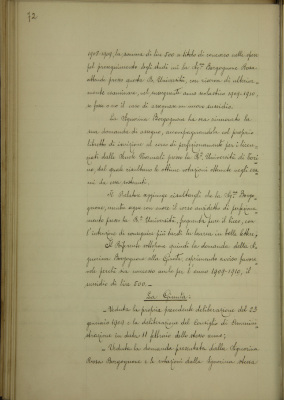 72
1908-1909, la somma di lire 500 a titolo di concorso nelle spese
pel proseguimento degli studi cui la Sig.na Borgogno Rosa
attende presso questa R. Università, con riserva di ulterior-
mente esaminare, nel prossimo anno scolastico 1909-1910,
se fosse o no il caso di assegnare un nuovo sussidio.
La Signorina Borgogno ha ora rinnovato la
sua domanda di assegno, accompagnandola col proprio
libretto di iscrizione al corso di perfezionamento per i licen-
ziati dalle Scuole Normali presso la R. Università di Tori-
no, dal quale risultano le ottime votazioni ottenute negli esa-
mi da essa sostenuti.
Il Relatore aggiunge risultargli che la Sig.na Borgo-
gno, mentre segue con onore il corso suddetto di perfezio-
namento presso la R. Università, frequenta pure il liceo, con
l'intenzione di conseguire più tardi la laurea in belle lettere.
Il Referente sottopone quindi la domanda della Si-
gnorina Borgogno alla Giunta, esprimendo avviso favore-
vole perchè sia concesso anche per l'anno 1909-1910, il
sussidio di lire 500.-
La Giunta:
Veduta la propria precedente deliberazione del 23
gennaio 1909 e la deliberazione del Consiglio di Ammini-
strazione in data 11 febbraio dello stesso anno;
Veduta la domanda presentata dalla Signorina
Rosa Borgogno e le votazioni dalla Signorina stessa